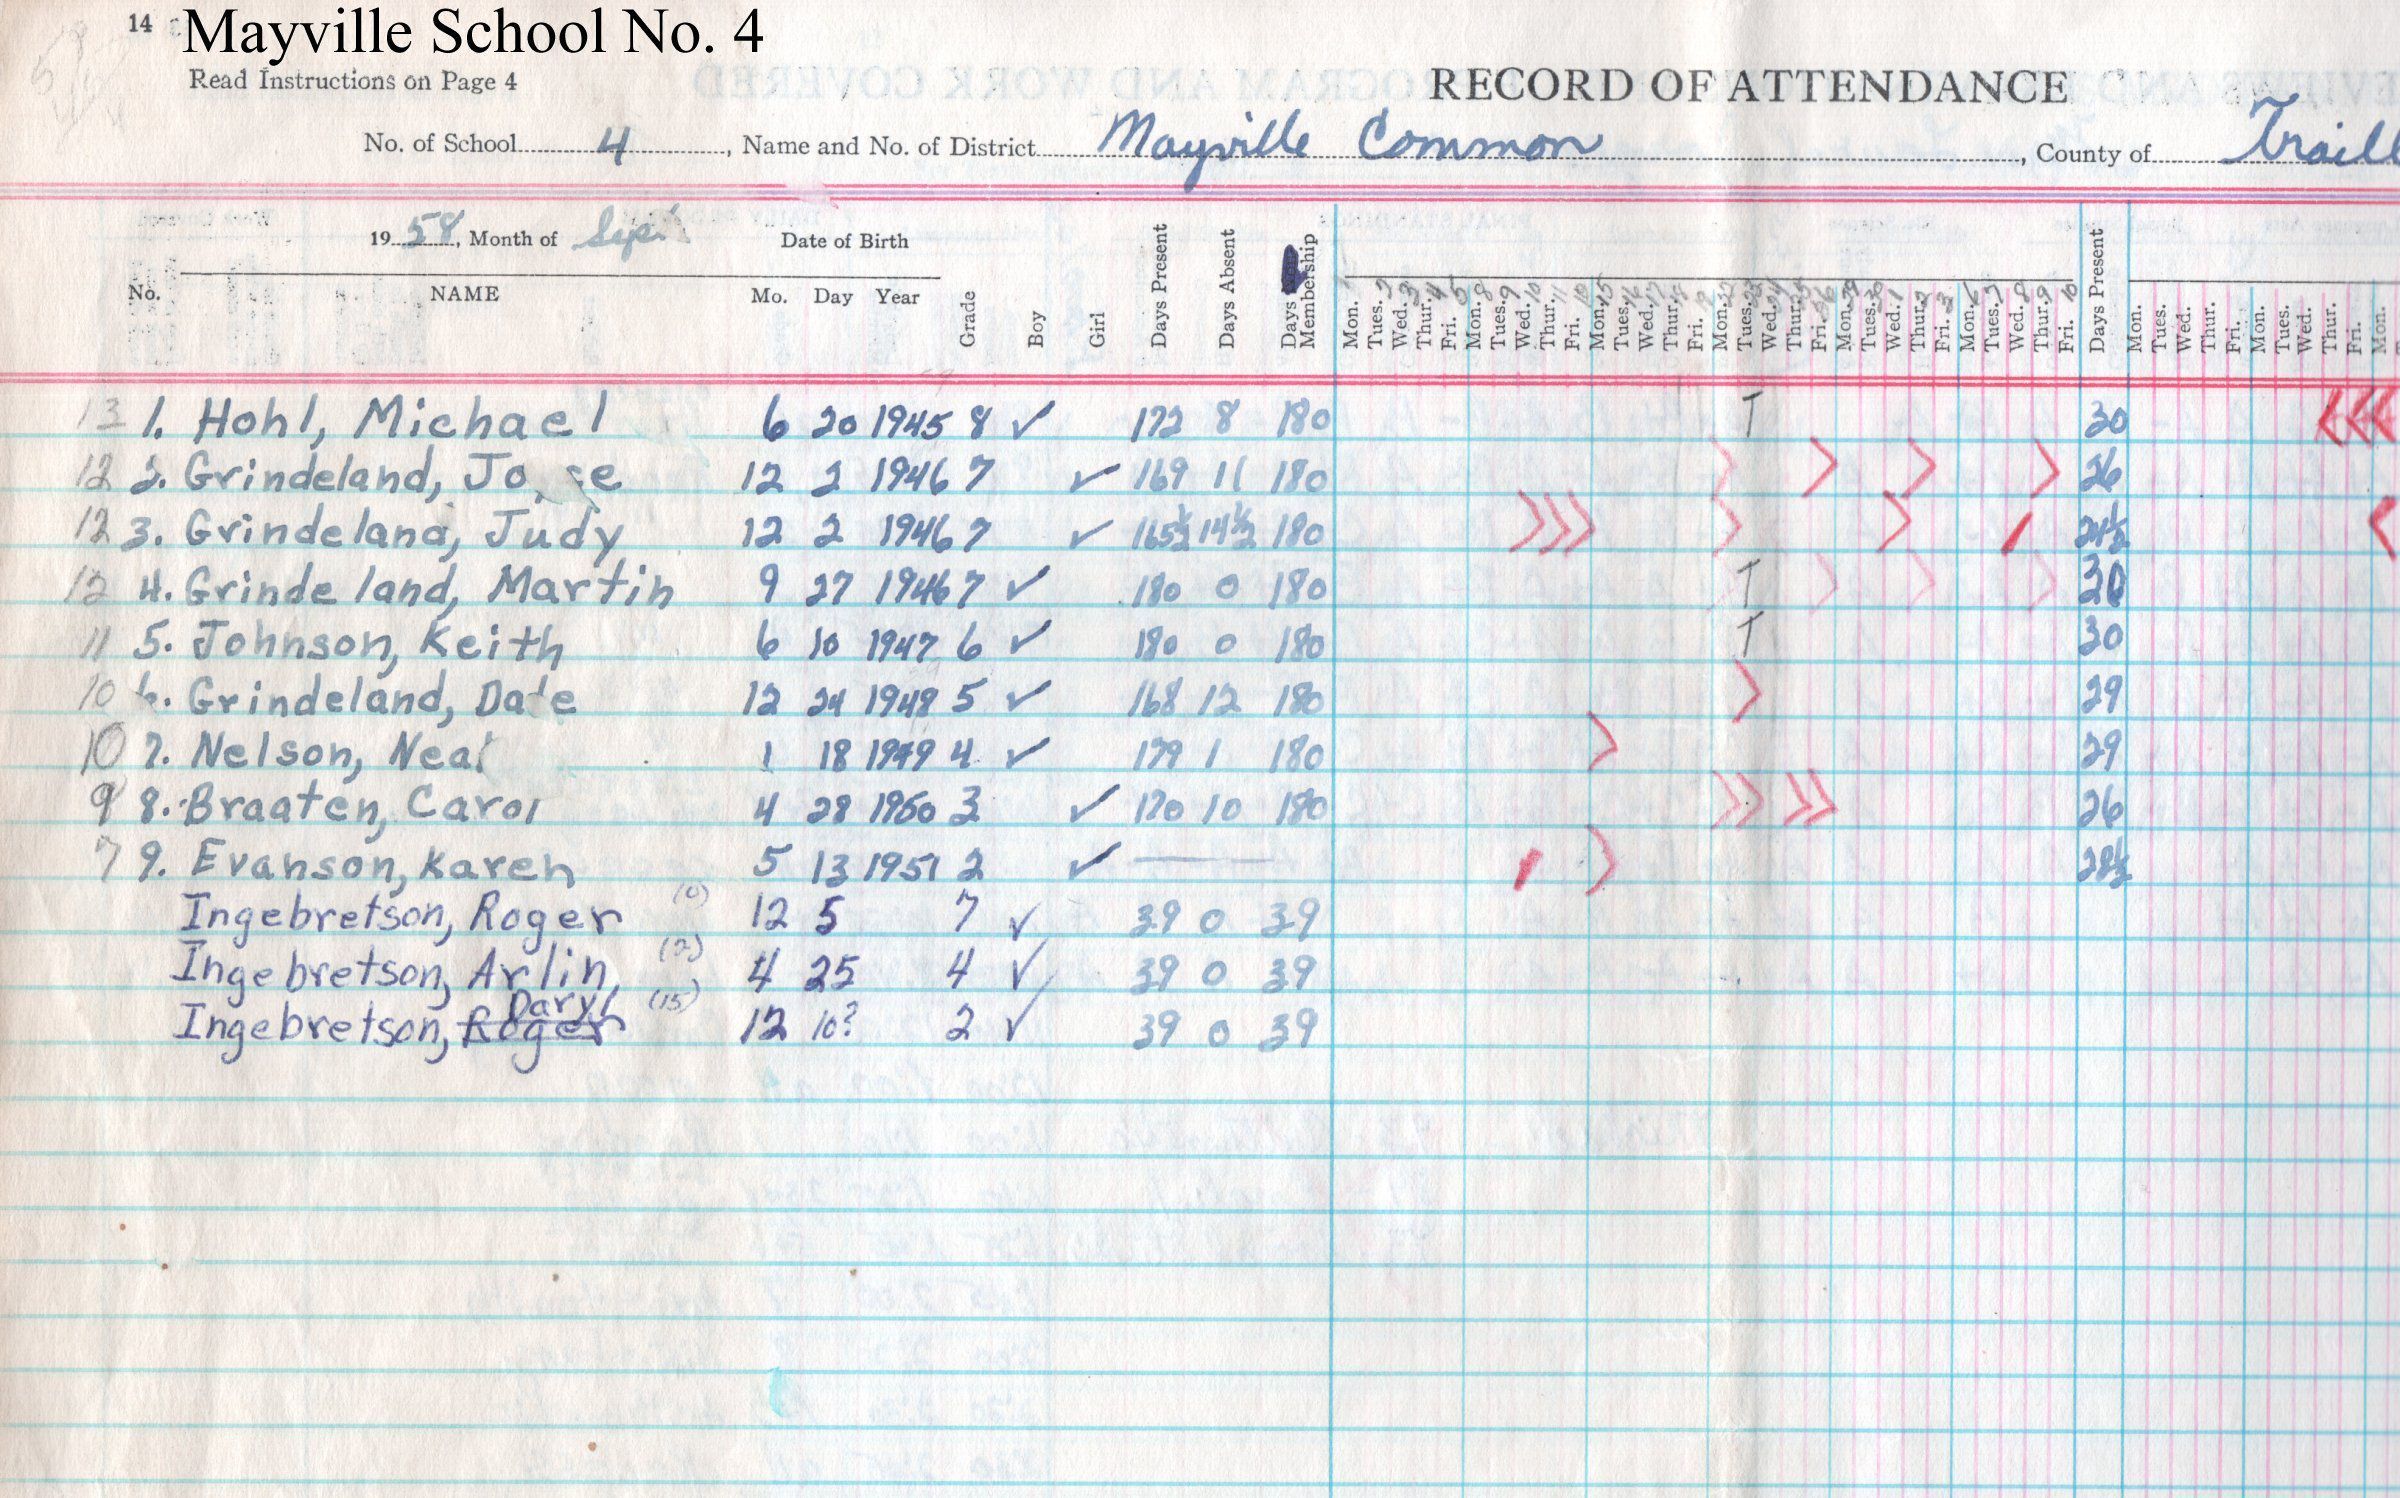 14 Mayville School No. 4
Read Instructions on Page 4
RECORD OF ATTENDANCE
No. of School 4, Name and No. of District Mayville Common, County of Traill
1958, Month of Sept Date of Birth
No. NAME Mo. Day Year Grade Boy Girl Days Present Days Absent Days Membership Mon. Tues. Wed. Thur. Fri. Mon. Tues. Wed. Thur. Fri. Mon. Tues. Wed. Thur. Fri. Mon. Tues. Wed. Thur. Fri. Mon. Tues. Wed. Thur. Fri. Mon. Tues. Wed. Thur. Fri. Days Present Mon. Tues. Wed. Thur. Fri. Mon. Tues. Wed. Thur. Fri. Mon.
13 1. Hohl, Michael 6 20 1945 8 ✓ 172 8 180 T 30
12 2. Grindeland, 12 2 1946 7 ✓ 169 11 180 26
12 3. Grindeland, Judy 12 2 1946 7 ✓ 165½ 14½ 180 24½
12 4. Grindeland, Martin 9 27 1946 7 ✓ 180 0 180 T 30
11 5. Johnson, Keith 6 10 1947 6 ✓ 180 0 180 T 30
10 6. Grindeland, Dale 12 24 1948 5 ✓ 168 12 180 29
10 7. Nelson, Neal 1 18 1949 4 ✓ 179 1 180 29
9 8. Braaten, Carol 4 28 1950 3 ✓ 170 10 180 26
7 9. Evanson, Karen 5 13 1951 2 ✓ 28½
Ingebretson, Roger (0) 12 5 7 ✓ 39 0 39
Ingebretson, Arlin (2) 4 25 4 ✓ 39 0 39
Ingebretson, Roger Daryl (15) 12 10? 2 ✓ 39 0 39